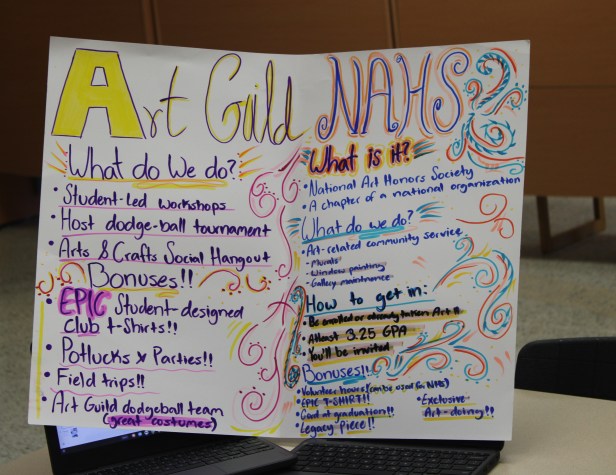 Art Guild
What do We do?
• Student-Led workshops
• Host dodge-ball tournament
• Arts & Crafts Social Hangout
Bonuses!!
• EPIC Student-designed
club t-shirts!!
• Potlucks & Parties!!
• Field trips!!
• Art Guild dodgeball team
(great costumes)
NAHS
What is it?
• National Art Honors Society
• A chapter of a national organization
What do we do?
• Art-related community service
- Murals
- Window painting
- Gallery maintenance
How to get in:
• Be enrolled or already taken Art II
• Atleast 3.25 GPA
• You'll be invited
Bonuses!!
• Volunteer hours (can be used for NHS)
• EPIC T-SHIRT!!
• Cord at graduation!!
• Legacy Piece!!
• Exclusive
Art-doing!!